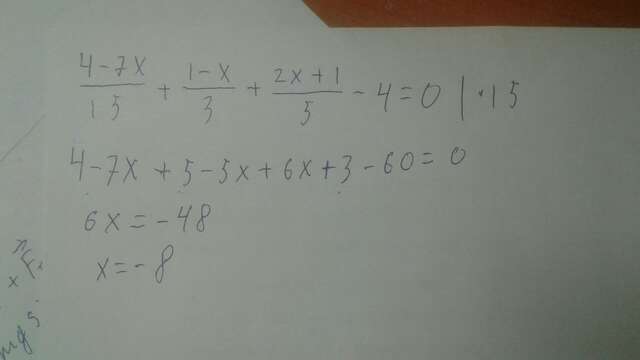 (4-7x)/15 + (1-x)/3 + (2x+1)/5 - 4 = 0 | · 15
4-7x + 5-5x + 6x + 3 - 60 = 0
6x = -48
x = -8